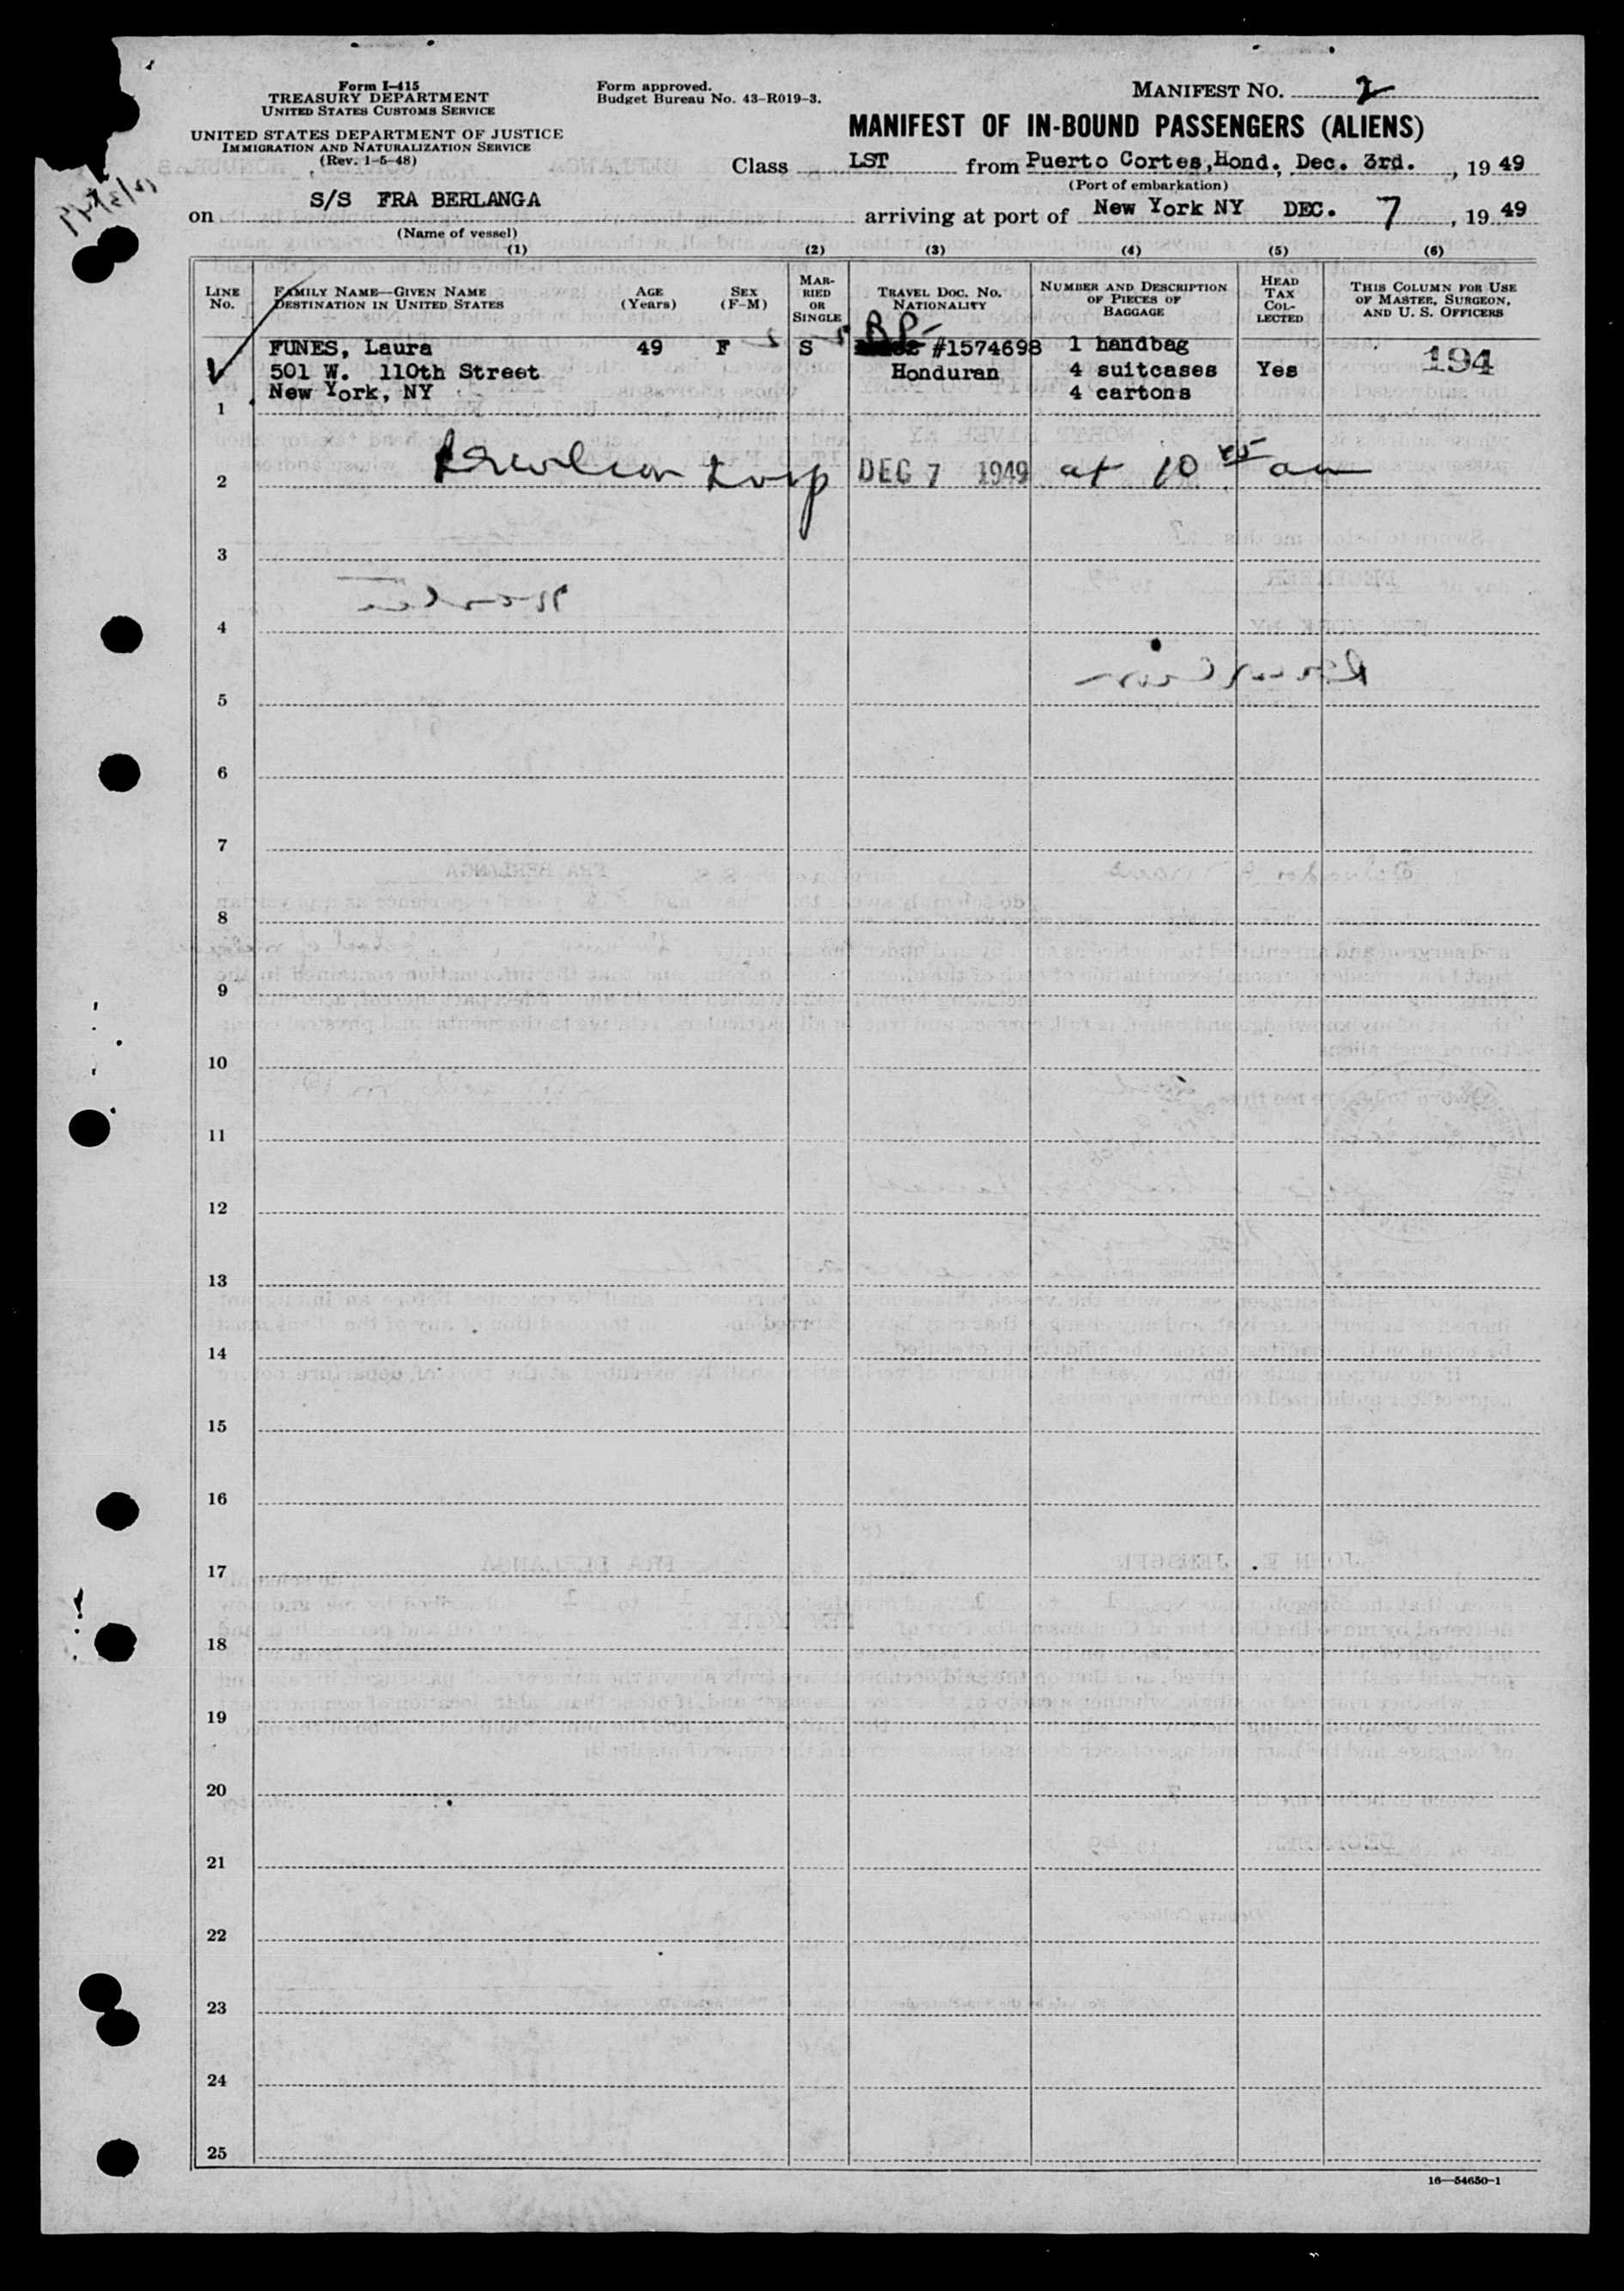 Form I-415
TREASURY DEPARTMENT
UNITED STATES CUSTOMS SERVICE
UNITED STATES DEPARTMENT OF JUSTICE
IMMIGRATION AND NATURALIZATION SERVICE
(Rev. 1-5-48)
Form approved.
Budget Bureau No. 43-R019-3.
MANIFEST NO. 2
MANIFEST OF IN-BOUND PASSENGERS (ALIENS)
Class LST from Puerto Cortes,Hond., Dec. 3rd., 19 49
(Port of embarkation)
on S/S FRA BERLANGA arriving at port of New York NY DEC. 7, 19 49
(Name of vessel)
(1) (2) (3) (4) (5) (6)
LINE No.
FAMILY NAME—GIVEN NAME
DESTINATION IN UNITED STATES
AGE (Years)
SEX (F-M)
MARRIED OR SINGLE
TRAVEL DOC. NO.
NATIONALITY
NUMBER AND DESCRIPTION OF PIECES OF BAGGAGE
HEAD TAX COLLECTED
THIS COLUMN FOR USE OF MASTER, SURGEON, AND U. S. OFFICERS
FUNES, Laura 49 F S #1574698 1 handbag 194
501 W. 110th Street Honduran 4 suitcases Yes
New York, NY 4 cartons
1
2 Insp DEC 7 1949 at 10 45 am
3
4
5
6
7
8
9
10
11
12
13
14
15
16
17
18
19
20
21
22
23
24
25
16—54650-1